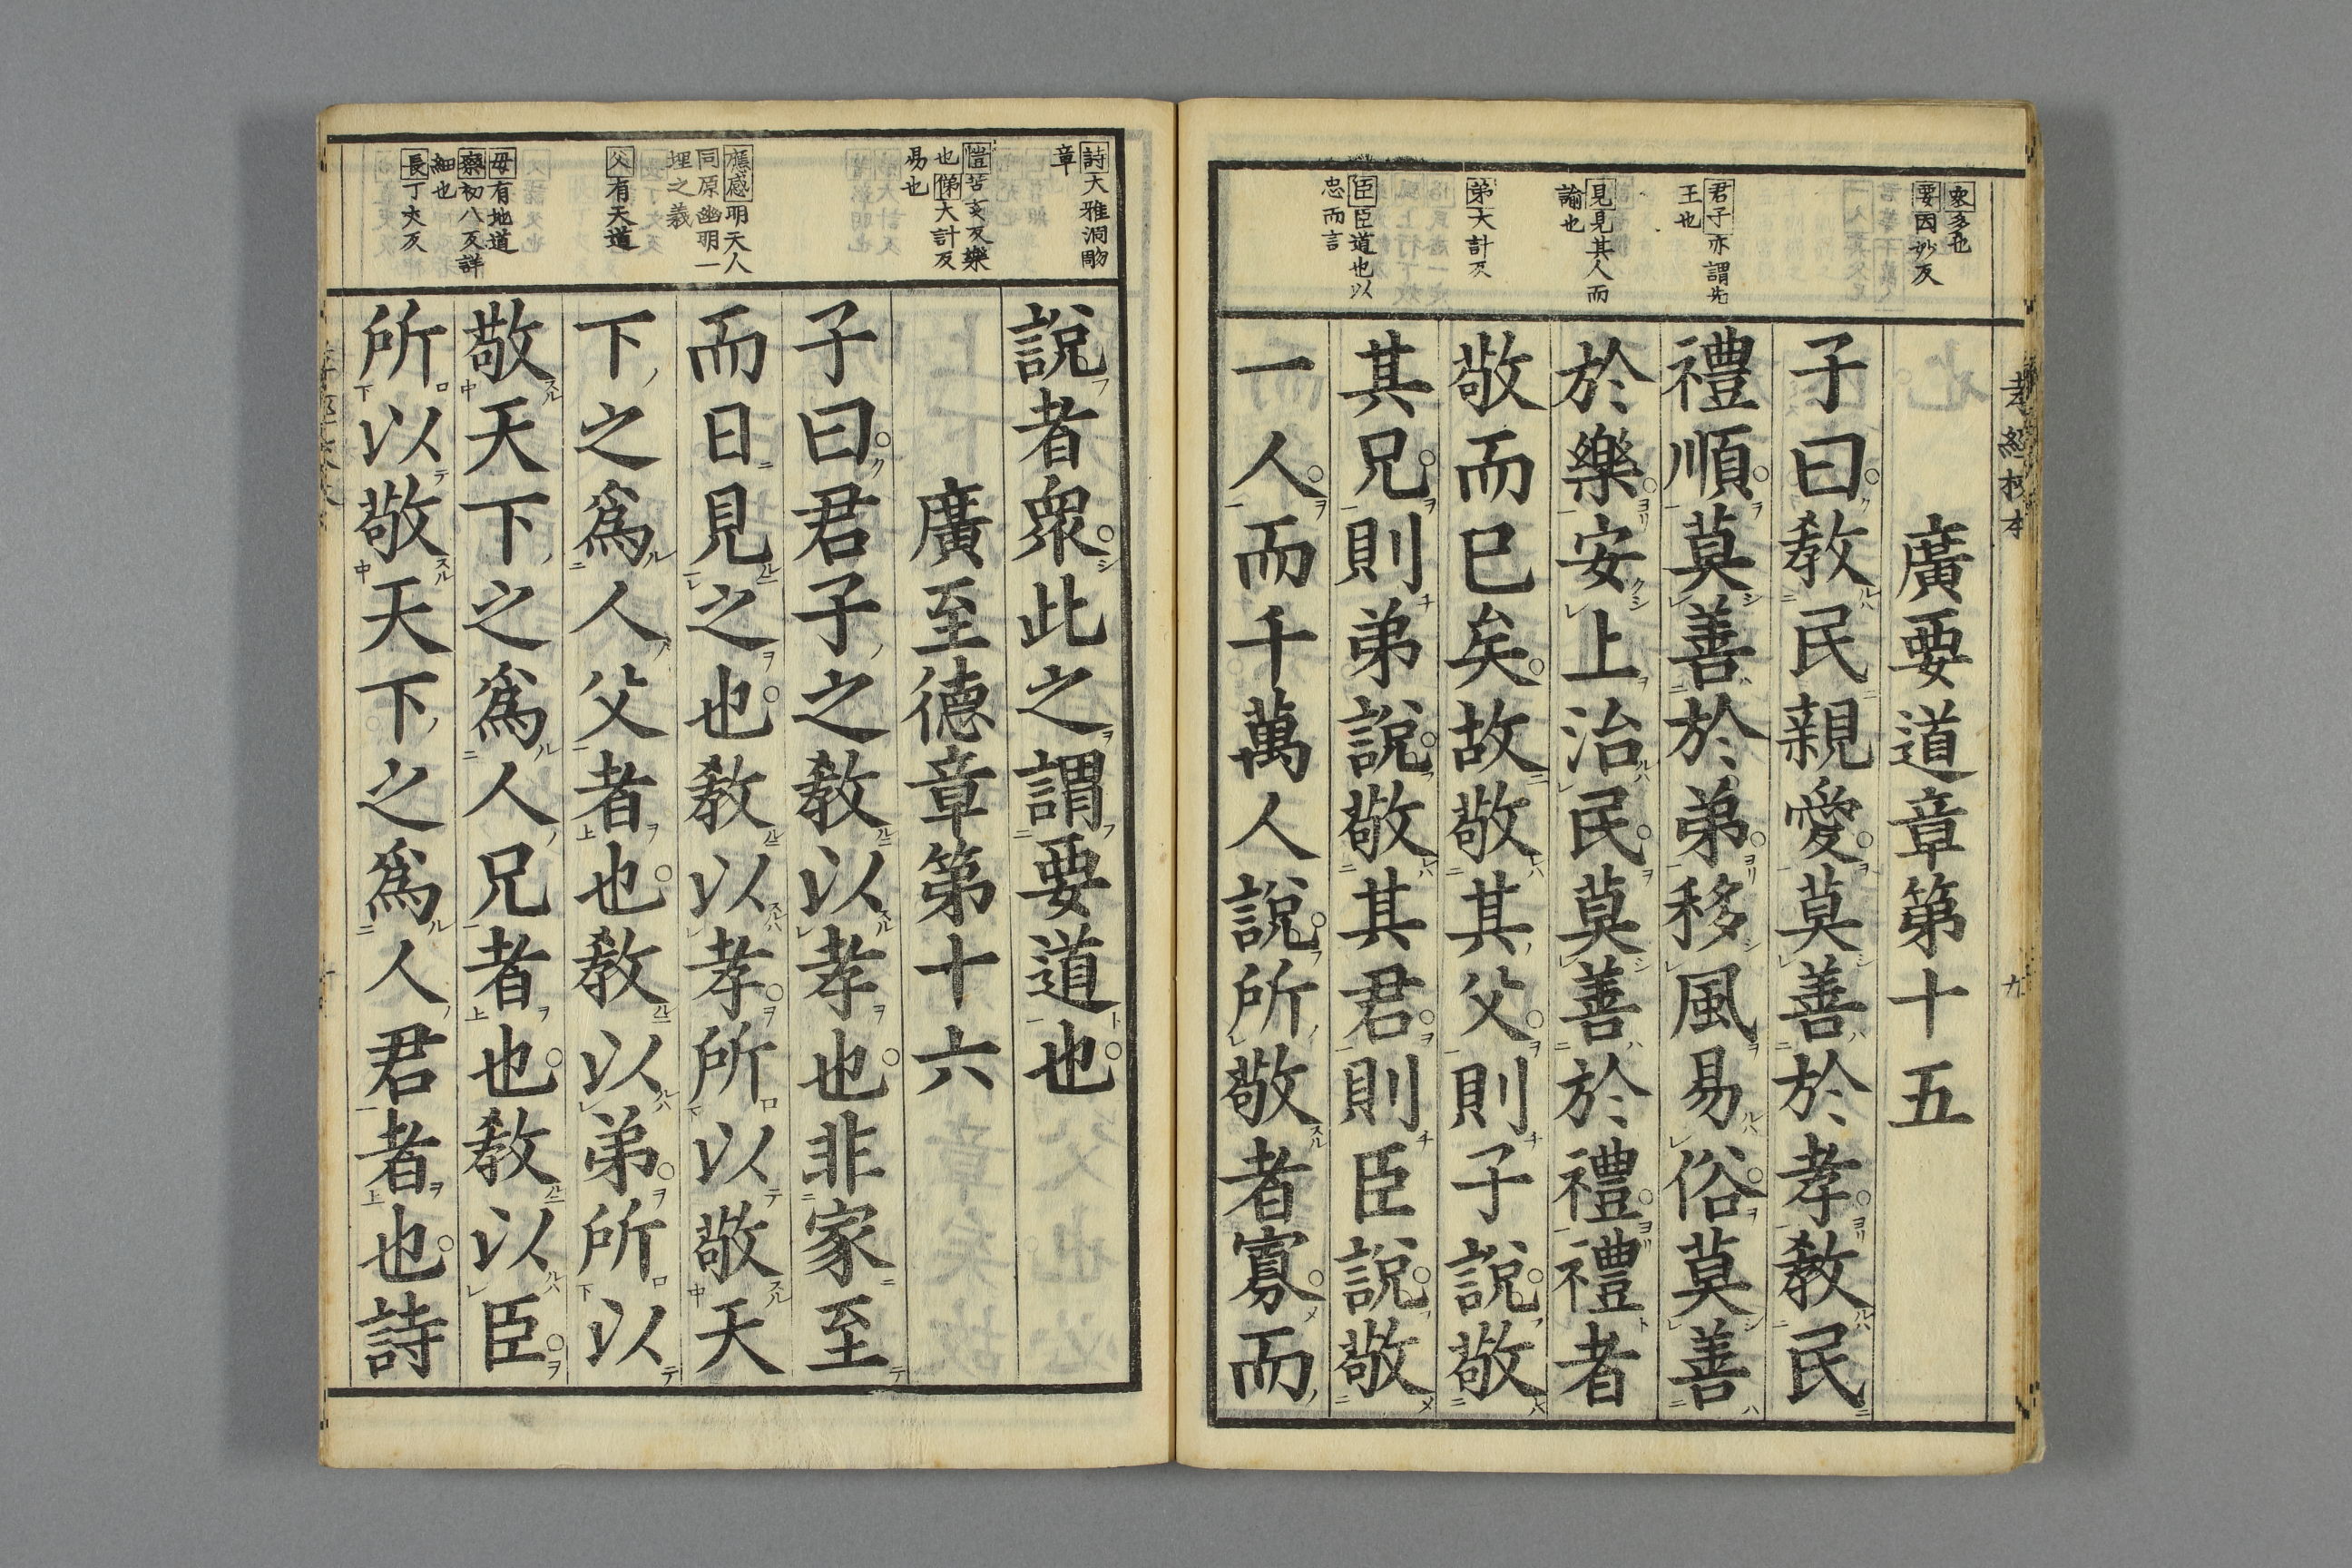 衆多也
要因妙反
君子亦謂先
王也
見見其人而
諭也
弟大計反
臣臣道也以
忠而言
廣要道章第十五
子曰教民親愛莫善於孝教民
禮順莫善於弟移風易俗莫善
於樂安上治民莫善於禮禮者
敬而已矣故敬其父則子說敬
其兄則弟說敬其君則臣說敬
一人而千萬人說所敬者寡而
詩大雅泂酌
章
愷苦亥反樂
也悌大計反
易也
應感明天人
同原幽明一
理之義
父有天道
母有地道
察初八反詳
細也
長丁丈反
說者衆此之謂要道也
廣至德章第十六
子曰君子之教以孝也非家至
而日見之也教以孝所以敬天
下之爲人父者也教以弟所以
敬天下之爲人兄者也教以臣
所以敬天下之爲人君者也詩